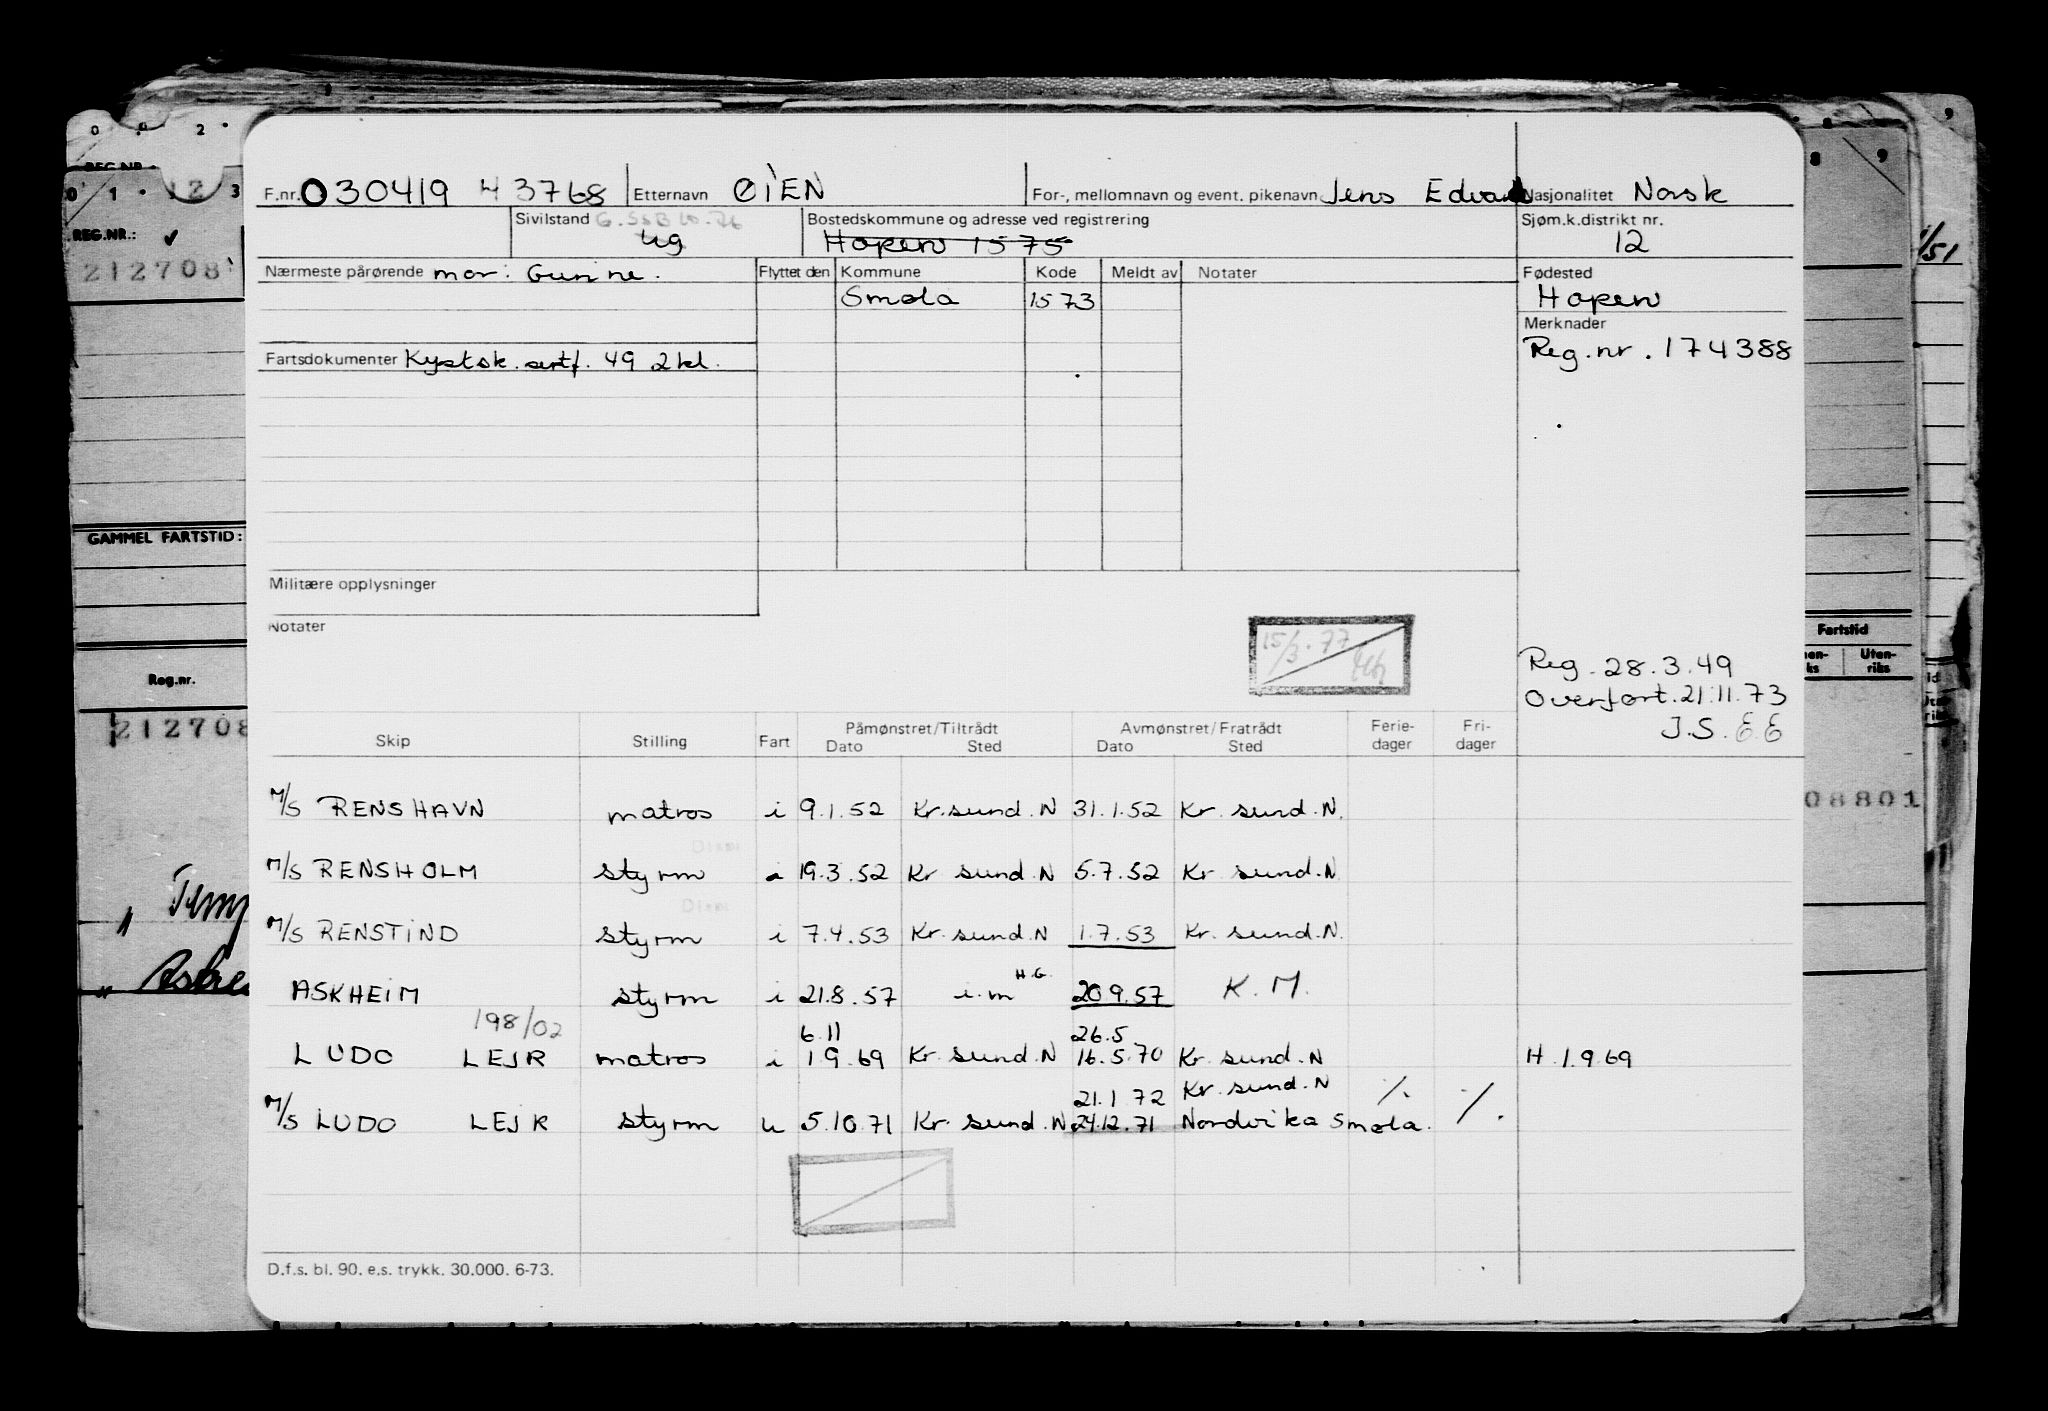 F.nr. 030419 43768 Etternavn ØIEN For-, mellomnavn og event. pikenavn Jens Edvard Nasjonalitet Norsk
Sivilstand ug Bostedskommune og adresse ved registrering Hopen 1575 Sjøm.k.distrikt nr. 12
Nærmeste pårørende mor: Gunine. Flyttet den Kommune Kode Meldt av Notater Fødested
Smøla 1573 Hopen
Merknader
Reg.nr. 174388
Fartsdokumenter Kystsk. sertf. 49 2 kl.
Militære opplysninger
Notater
15/3.77
Reg. 28.3.49
Overført. 21.11.73
J.S. EE
Skip Stilling Fart Påmønstret/Tiltrådt Dato Sted Avmønstret/Fratrådt Dato Sted Ferie-dager Fri-dager
M/S RENSHAVN matros i 9.1.52 Kr.sund.N 31.1.52 Kr.sund.N.
M/S RENSHOLM styrm 19.3.52 Kr sund.N 5.7.52 Kr sund.N
M/S RENSTIND styrm i 7.4.53 Kr.sund.N 1.7.53 Kr.sund.N.
H.G.
ASKHEIM styrm i 21.8.57 i.m 20.9.57 K.M.
198/02 6.11 26.5
LUDO LEJR matros i 1.9.69 Kr.sund.N 16.5.70 Kr.sund.N H.1.9.69
21.1.72 Kr.sund.N ./. ./.
M/S LUDO LEJR styrm u 5.10.71 Kr.sund.N 24.12.71 Nordvika Smøla.
D.f.s. bl. 90. e.s. trykk. 30.000. 6-73.
0 1 2 3
REG.NR.:
212708
GAMMEL FARTSTID:
Reg.nr.
212708
8 9
/51
Fartstid
Uten-
riks
08801